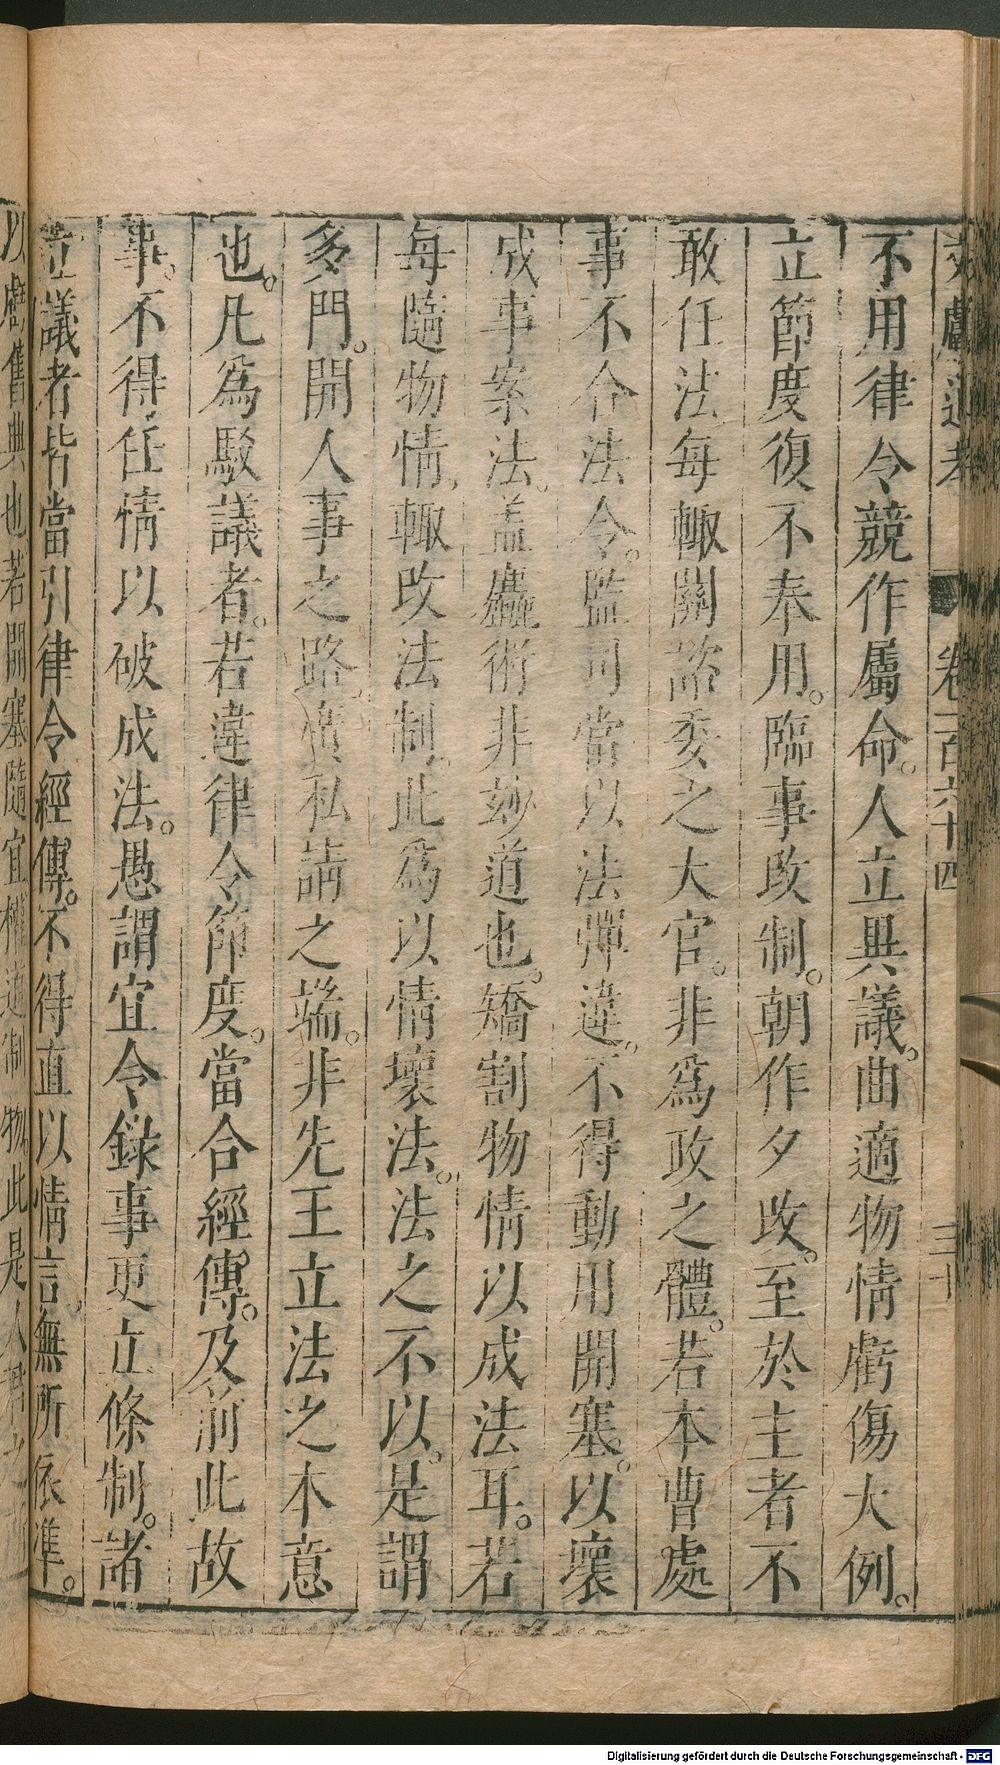 文獻通考 卷一百六十四 三十
不用律令競作屬命。人立異議。曲適物情虧傷大例。
立節度復不奉用。臨事改制。朝作夕改。至於主者不
敢任法每輙關諮委之大官。非爲政之體。若本曹處
事不合法令。監司當以法彈違。不得動用開塞。以壞
成事案法。蓋麤術非妙道也。矯割物情以成法耳。若
每隨物情輙改法制。此爲以情壞法。法之不以。是謂
多門。開人事之路廣私請之端。非先王立法之本意
也。凡爲駁議者。若違律令節度。當合經傳。及前此故
事。不得任情以破成法。愚謂宜令錄事更立條制。諸
立議者皆當引律令經傳。不得直以情言無所依準。
以虧舊典也若開塞隨宜權道制物此是人君之
Digitalisierung gefördert durch die Deutsche Forschungsgemeinschaft - DFG